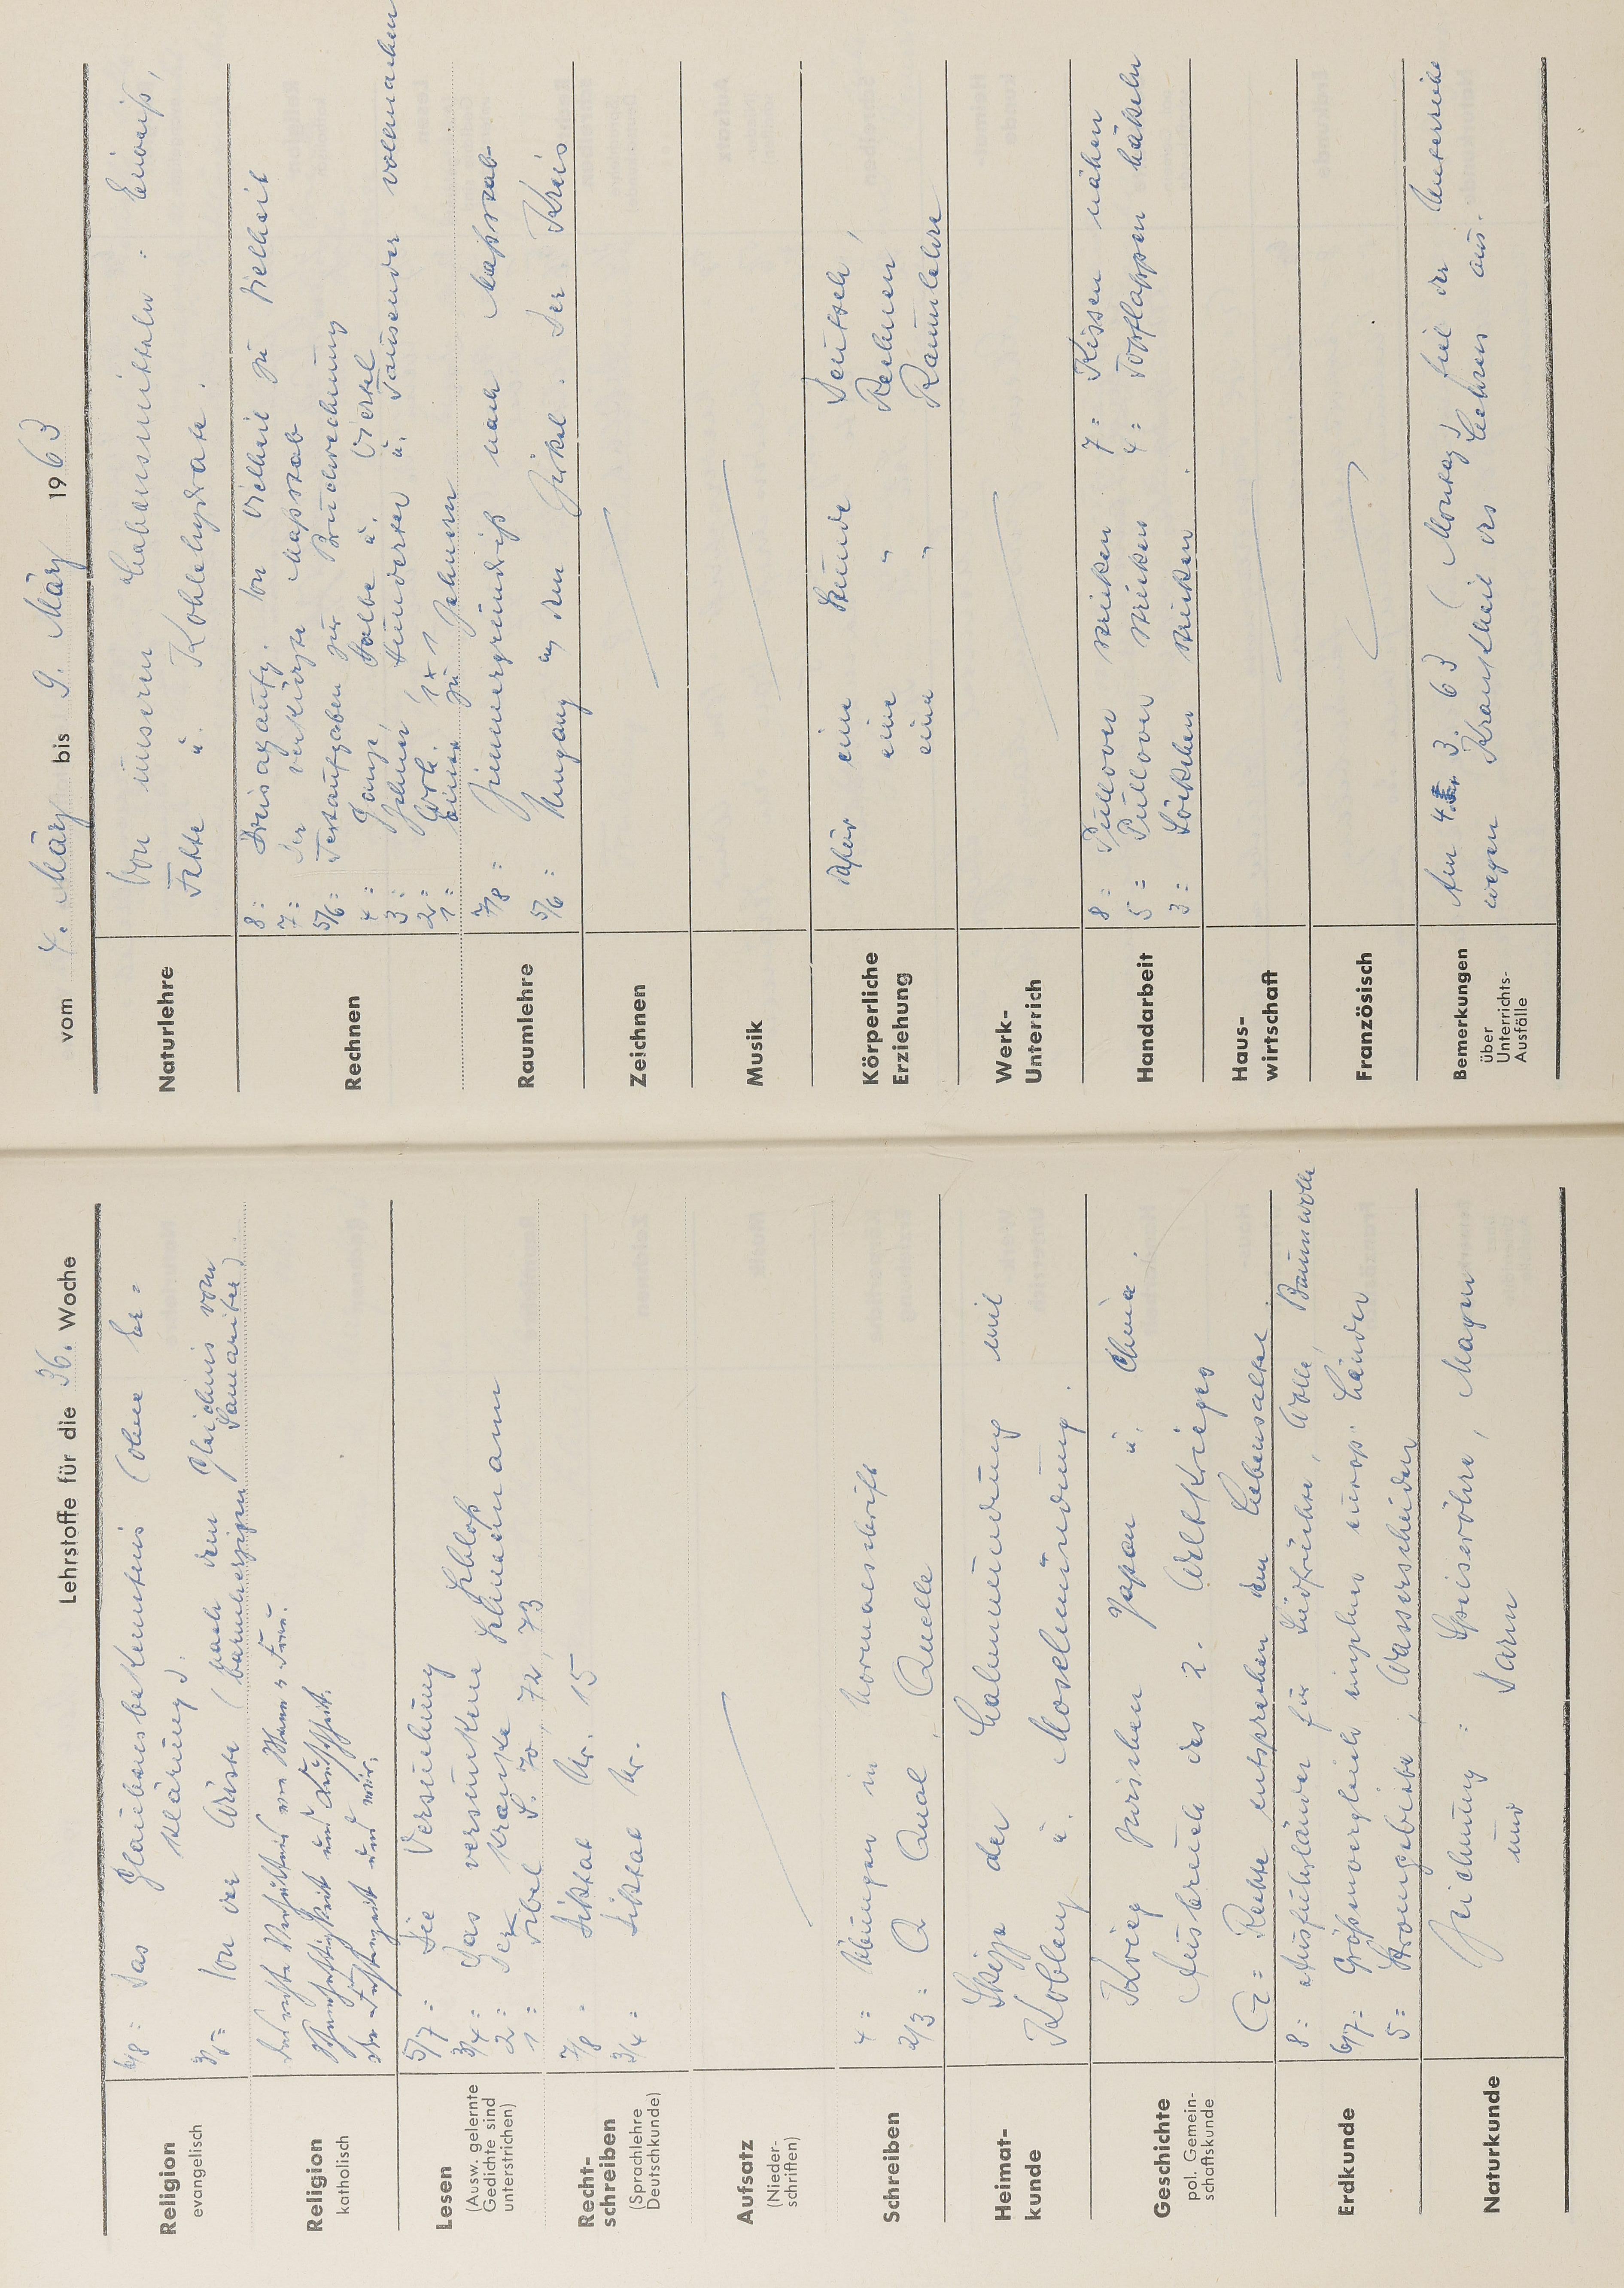 Lehrstoffe für die 36. Woche
Religion
evangelisch
6/8: Das Glaubensbekenntnis (ohne Er=
klärung).
3/5: Von der Wüste (nach dem Gleichnis vom
barmherzigen Samariter)
Religion
katholisch
Das rechte Verhältnis von Mann u. Frau.
und Keuschheit.
und wir.
Lesen
(Ausw. gelernte
Gedichte sind
unterstrichen)
5/7: Die Versuchung
3/4: Das versunkene Schloß
2: Der kranke Schneemann
1: Fibel S. 70, 72, 73
Recht-
schreiben
(Sprachlehre
Deutschkunde)
7/8: Diktat Nr. 15
3/4: Diktat Nr.
Aufsatz
(Nieder-
schriften)
Schreiben
4: Übungen in Normalschrift
2/3: Q Qual, Quelle
Heimat-
kunde
Skizze der Lahnmündung mit
Koblenz u. Moselmündung.
Geschichte
pol. Gemein-
schaftskunde
Krieg zwischen Japan u. China.
Ausbruch des 2. Weltkrieges
G: Rechte entsprechen dem Lebensalter
Erdkunde
8: Ausfuhrländer für Südfrüchte, Wolle, Baumwolle
6/7: Größenvergleich einzelner europ. Länder
5: Stromgebiete, Wasserscheiden
Naturkunde
Zeichnung: Speiseröhre, Magen
und Darm
vom 4. März bis 9. März 1963
Naturlehre
Von unseren Lebensmitteln: Eiweiß,
Fette u. Kohlehydrate.
Rechnen
8: Dreisatzaufg. von Vielheit zu Vielheit
7: Der verkürzte Maßstab
5/6: Textaufgaben zur Bruchrechnung
4: Ganze, Halbe u. Viertel
3: Zehner, Hunderter u. Tausender vollmachen
2: Wdh. 1x1
1: Einer zu Zehnern
Raumlehre
7/8: Zimmergrundriß nach Maßstab
5/6: Umgang mit dem Zirkel. Der Kreis
Zeichnen
Musik
Körperliche
Erziehung
dafür eine Stunde Deutsch,
eine " Rechnen
eine " Raumlehre
Werk-
Unterrich
Handarbeit
8: Pullover stricken 7: Kissen nähen
5: Pullover stricken 4: Topflappen häkeln
3: Söckchen stricken
Haus-
wirtschaft
Französisch
Bemerkungen
über
Unterrichts-
Ausfälle
Am 4. 3. 63 (Montag) fiel der Unterricht
wegen Krankheit des Lehrers aus.